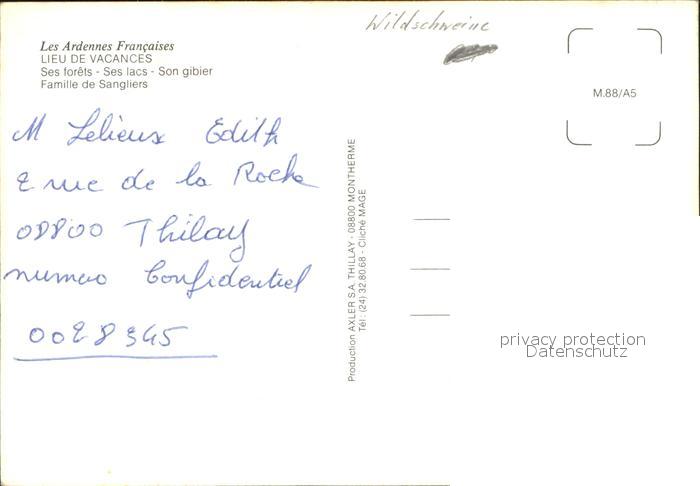 Wildschweine
Les Ardennes Françaises
LIEU DE VACANCES
Ses forêts - Ses lacs - Son gibier
Famille de Sangliers
M.88/A5
M Lelieux Edith
2 rue de la Roche
08800 Thilay
numeo Confidentiel
0028345
Production AXLER S.A. THILLAY - 08800 MONTHERME
Tél: (24) 32.80.68 - Cliché MAGE
privacy protection
Datenschutz